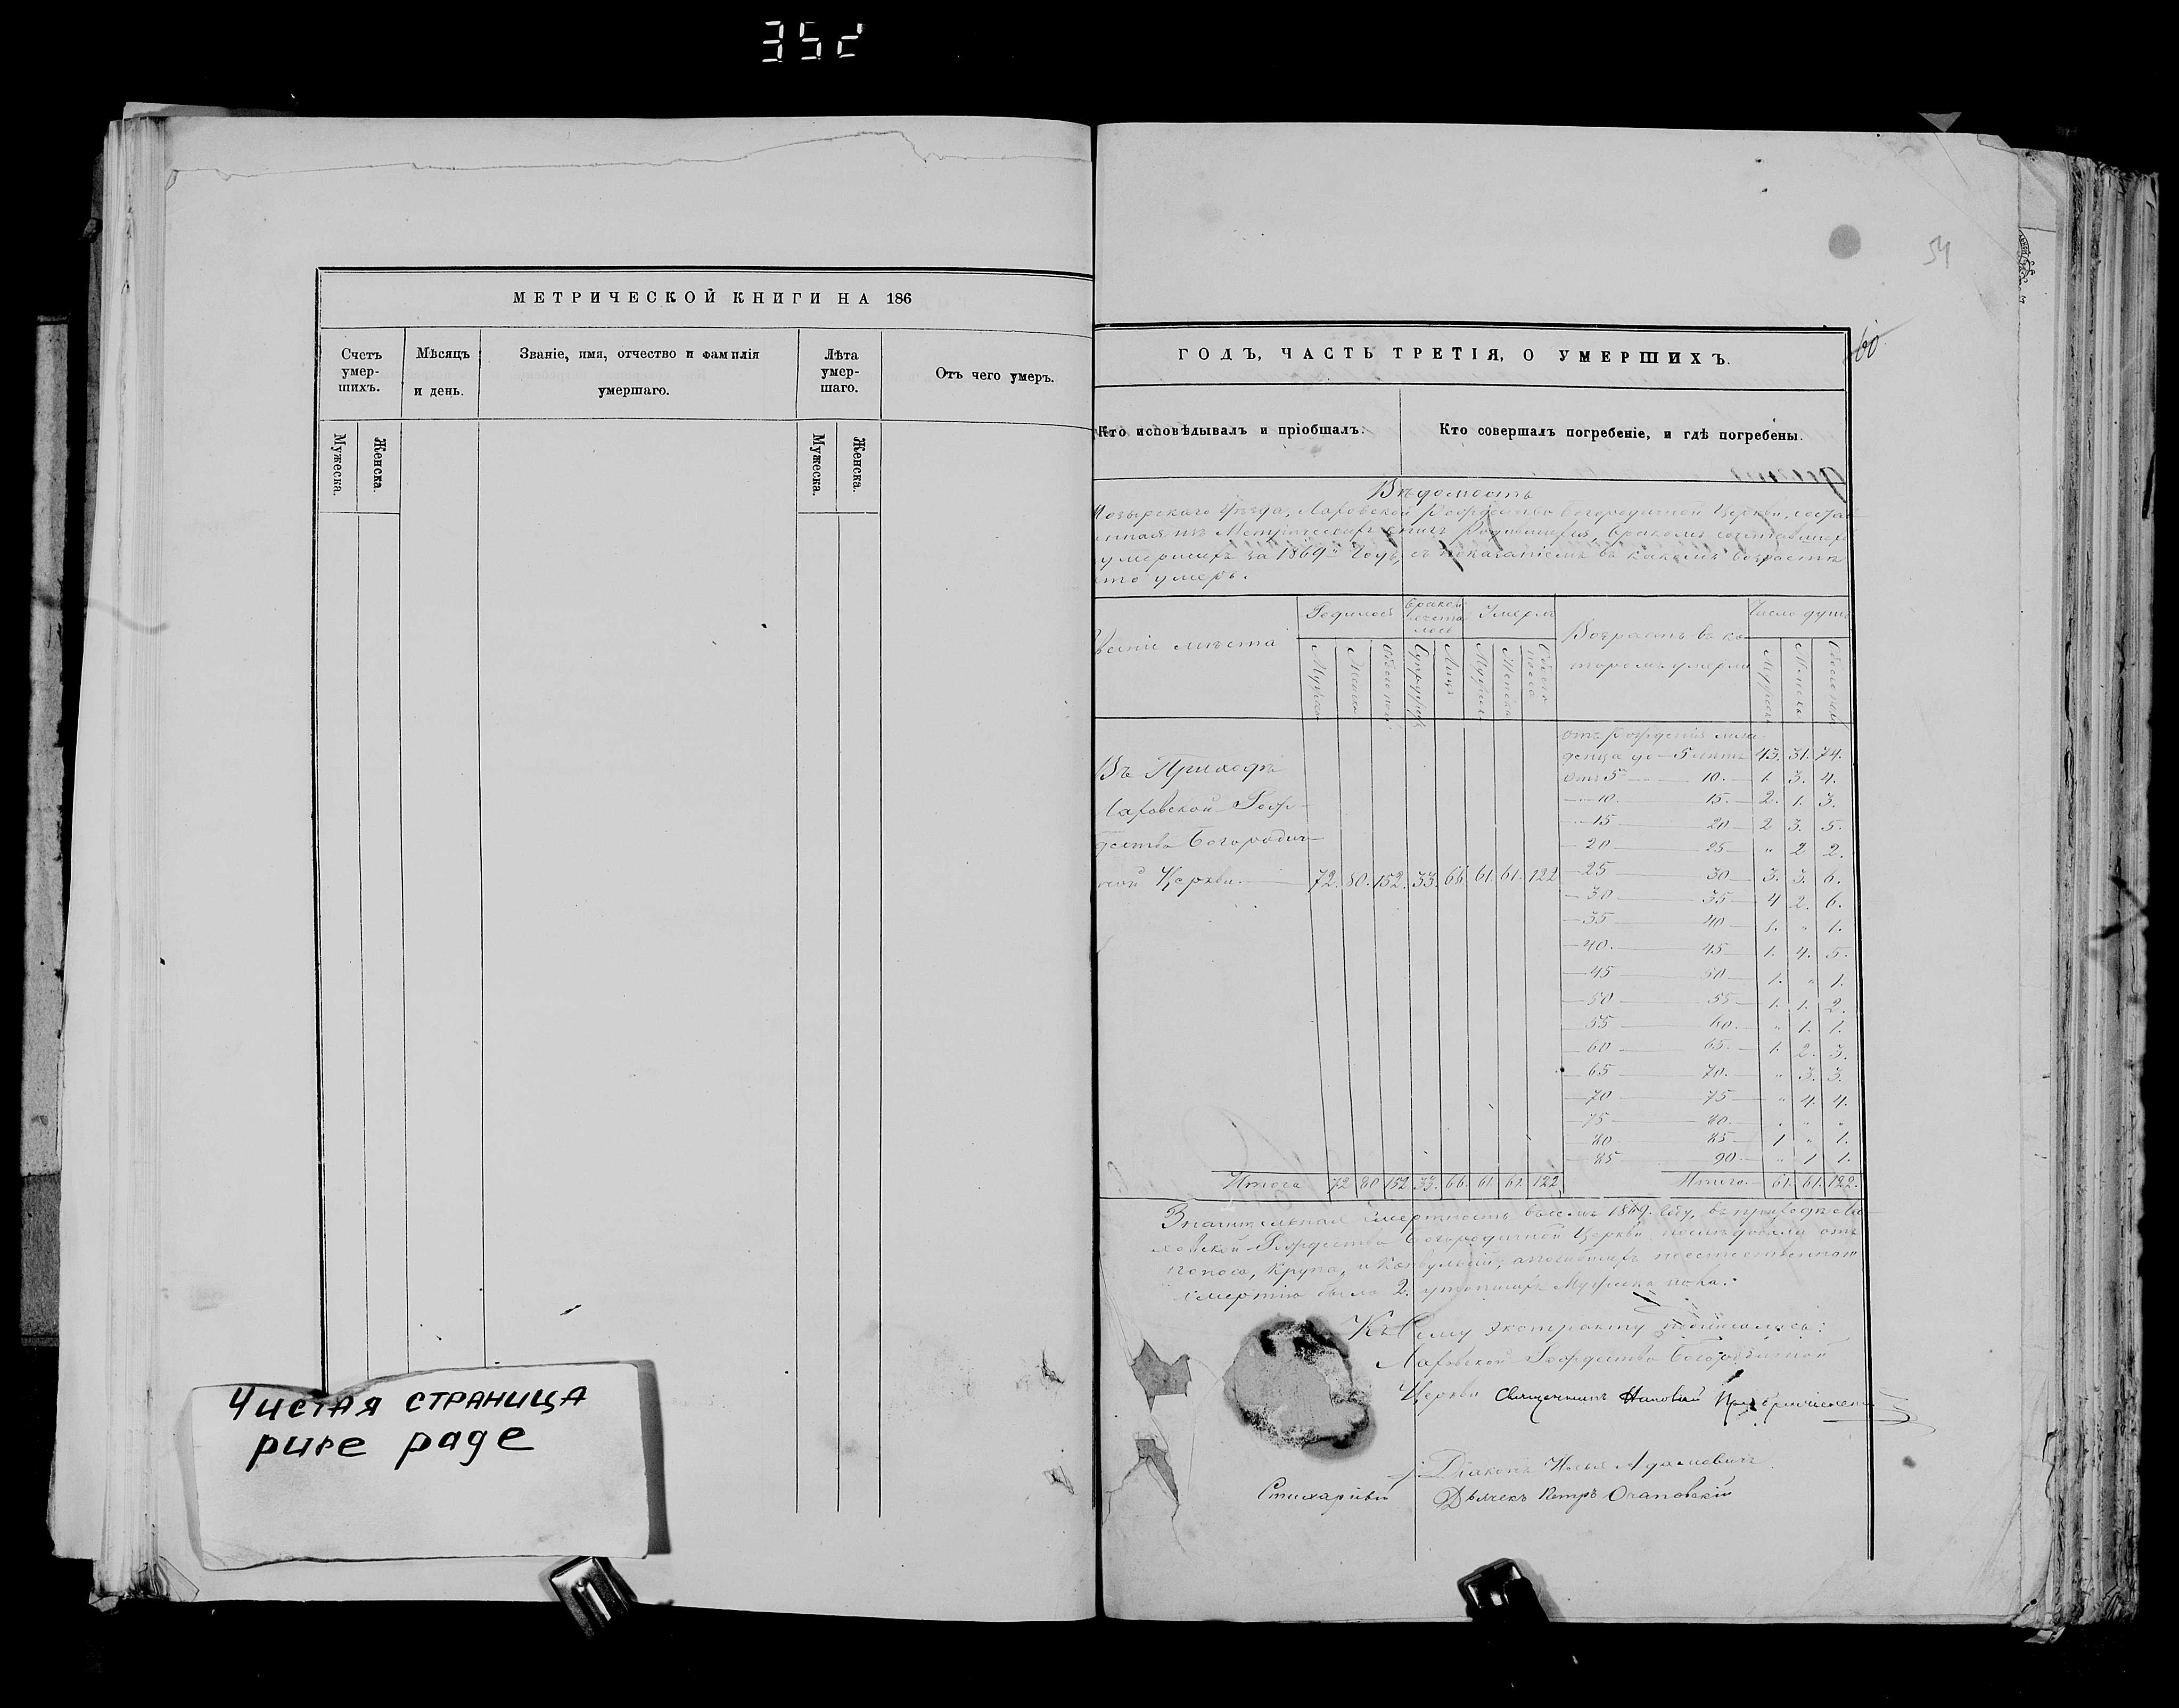 352
МЕТРИЧЕСКОЙ КНИГИ НА 186
Счетъ умер- шихъ.
Мѣсяцъ и день.
Званіе, имя, отчество и фамилія умершаго.
Лѣта умер- шаго.
Отъ чего умеръ.
Мужеска.
Женска.
Мужеска.
Женска.
Чистая страница
pure page
54
60
ГОДЪ, ЧАСТЬ ТРЕТІЯ, О УМЕРШИХЪ.
Кто исповѣдывалъ и пріобщалъ.
Кто совершалъ погребеніе, и гдѣ погребены.
Вѣдомость
Мозырскаго Уѣзда, Лаховской Рождество Богородичной Церкви, состав
умершихъ за 1869й Годъ, съ показаніемъ въ какомъ возрастѣ
кто умеръ.
мѣста
Родилось
Умерло
Возрастъ въ ко-
торомъ умерли
Число душъ
Въ Приходѣ
Лаховской Рож-
дество Богородич-
ной Церкви. 72. 80. 152. 33. 66. 61. 61. 122
отъ рожденія мла-
денца до 5 лѣтъ 43. 31. 74.
Отъ 5 10. 1. 3. 4.
10. 15. 2. 1. 3.
15 20 2 3. 5.
20 25 " 2 2.
25 30 3. 3. 6.
30 35 4 2. 6.
35 40 1. " 1.
40. 45 1. 4. 5.
45 50 1. " 1.
50 55 1. 1. 2.
55 60. " 1. 1.
60 65. 1. 2. 3.
65 70. " 3. 3.
70 75 " 4. 4.
75 80. " " "
80 85 1 " 1.
85 90 " 1 1.
Итого 72 80 152 33. 66. 61. 61. 122
Итого. 61. 61. 122.
Значительная смертность въ семъ 1869. Году, въ приходѣ Ла-
ховской Рождество Богородичной Церкви, послѣдовала отъ
поноса, Крупа, и Конвульсій, неестественною
смертію было 2. утопшихъ Мужеска пола.
Къ Сему экстракту подписались:
Лаховской Рождество Богородичной
Церкви Священникъ
Діаконъ Илья Адамовичъ
Стихарный Дьячекъ Петръ